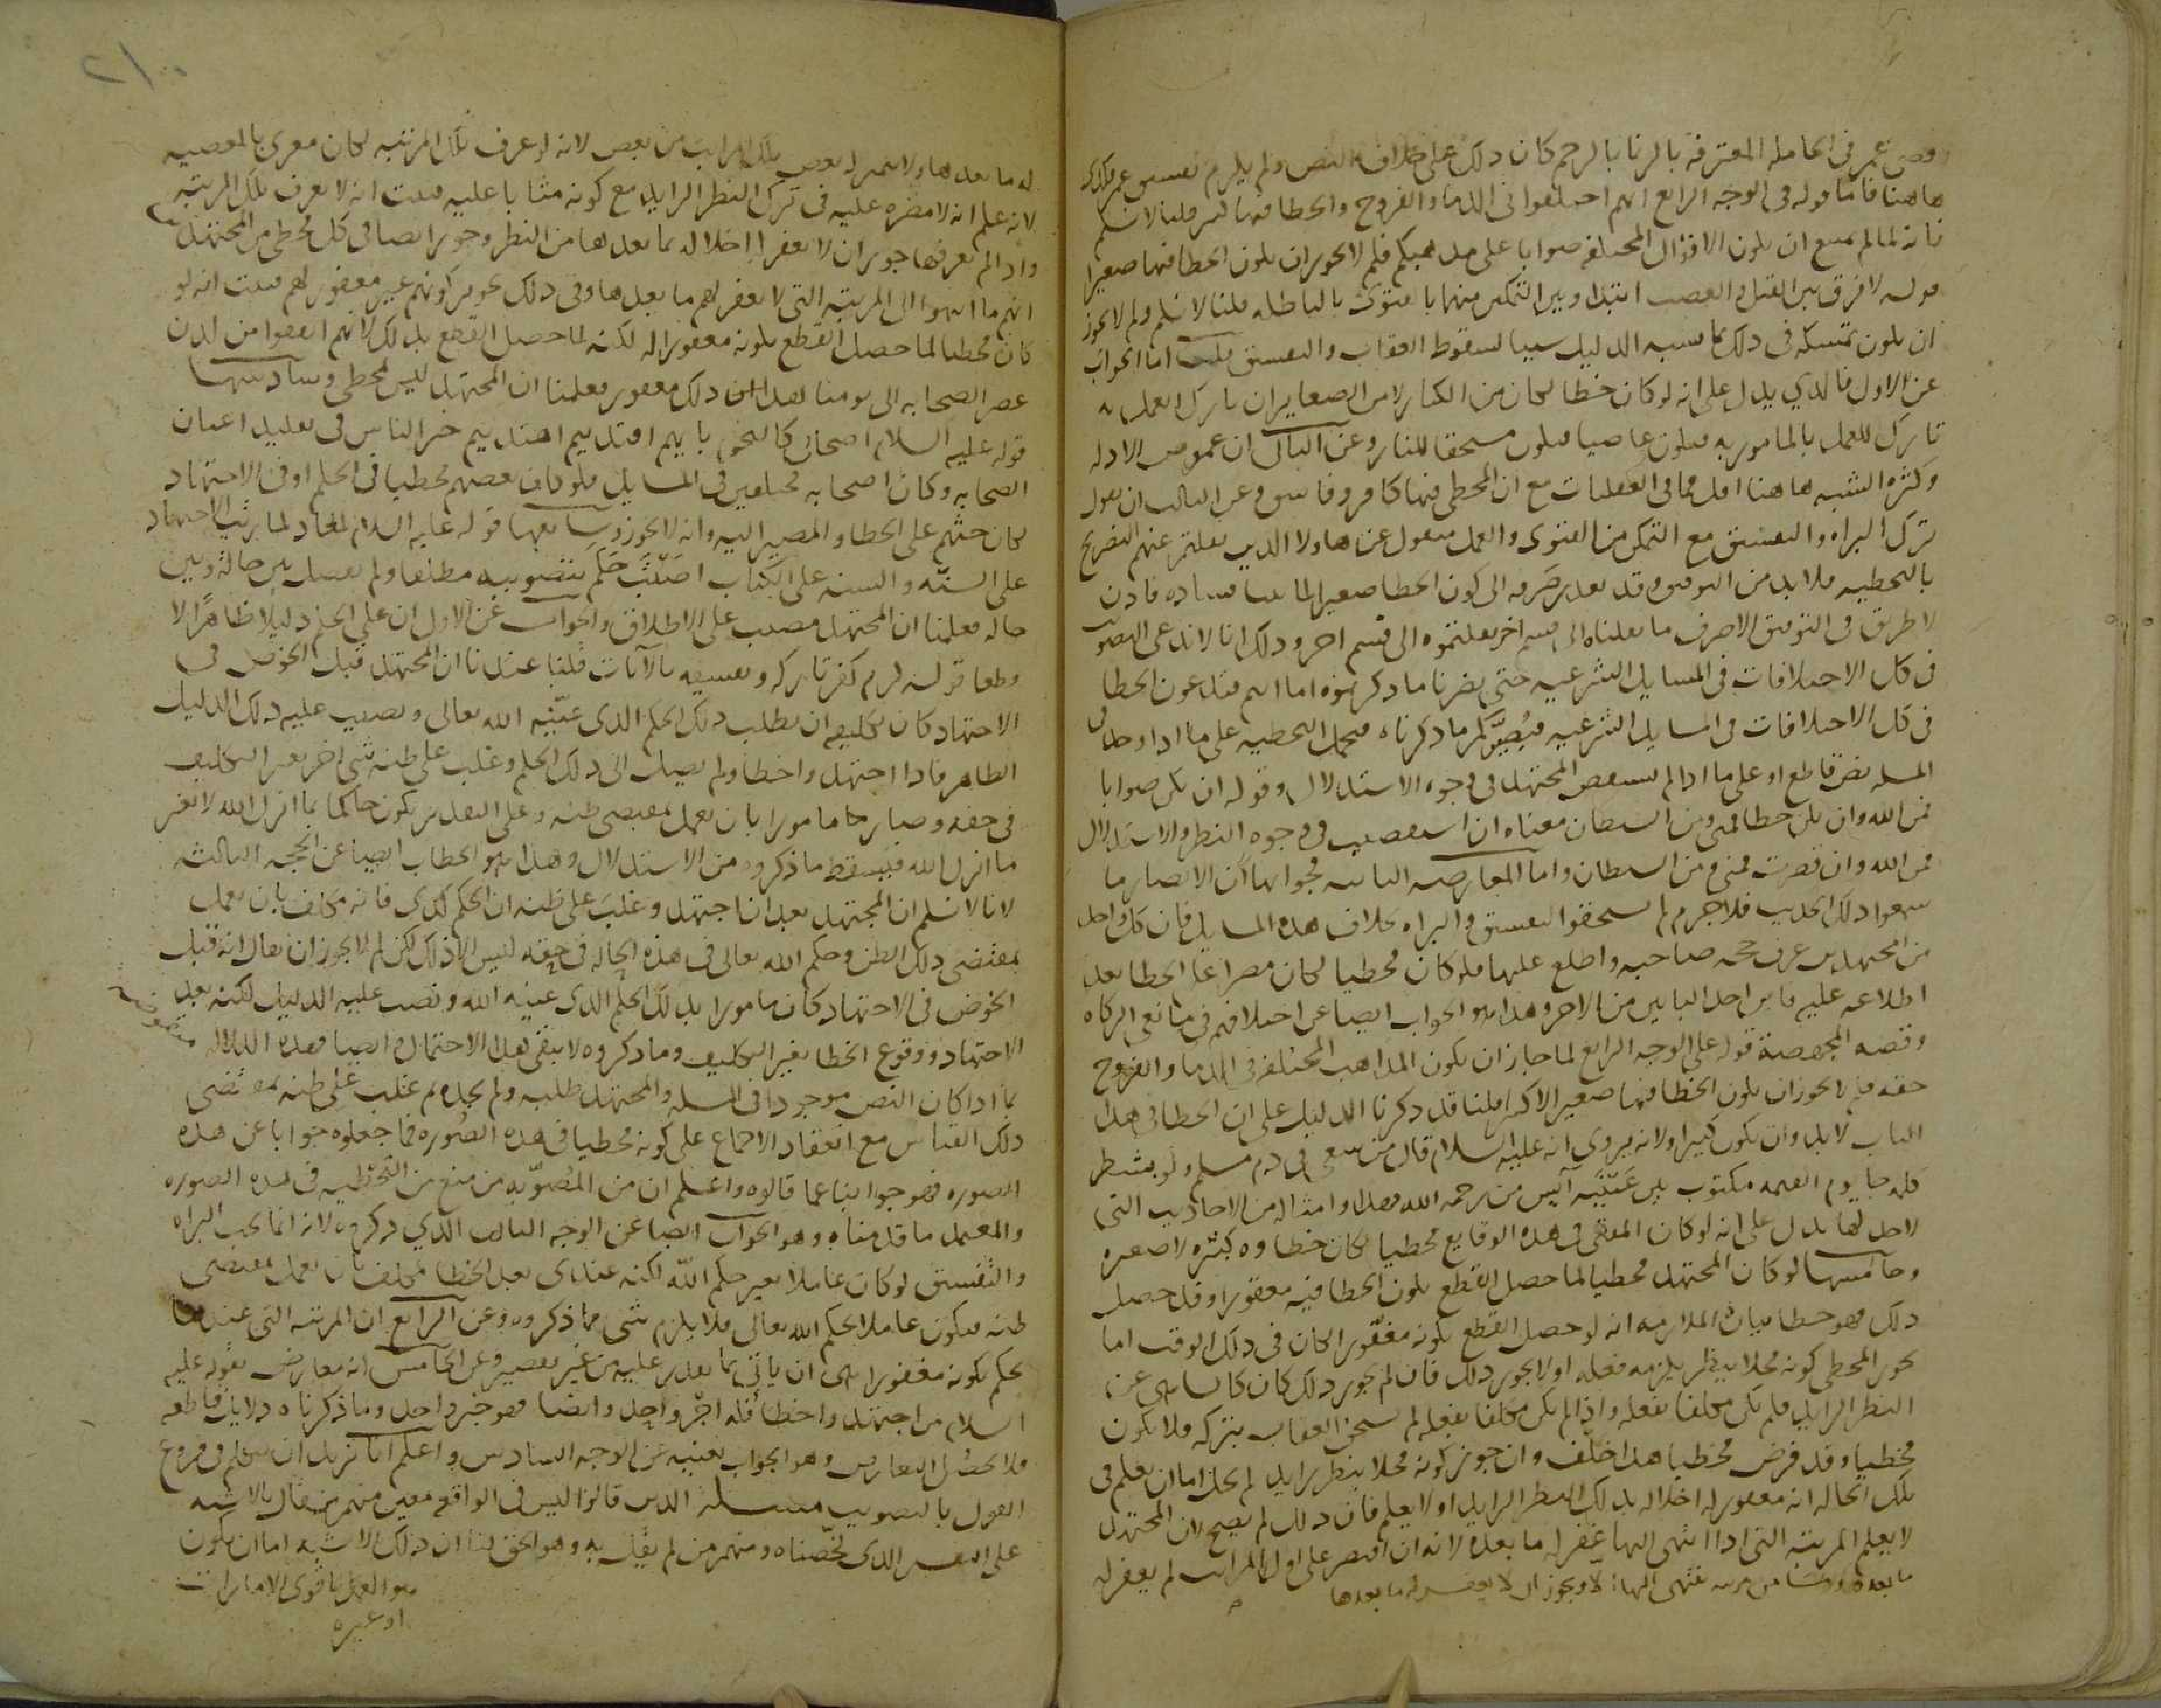 وقضى عمر فى الحامله المعترفة بالزنا بالرجم كان ذلك على خلاف النص ولم يلزم تفسيق عمر فكذى
هاهنا فاما قوله فى الوجه الرابع انهم اختلفوا فى الدما والفروج والخطا فيها كبير قلنا لا نسلم
فانه لما لم يمتنع ان يكون الاقوال المختلفه صوابا على مذهبكم فلم لا يجوز ان يكون الخطا فيها صغيرا
قوله لا فرق بين القتل والغصب ابتدا وبين التمكين منهما بالفتوى بالباطله قلنا لا نسلم ولم لا يجوز
ان يكون تمسكه فى ذلك بما يشبه الدليل سببا لسقوط العقاب والتفسيق قلت اما الجواب
عن الاول فالذي يدل على انه لو كان خطا لكان من الكباير لا من الصغاير ان تارك العمل
تارك للعمل بالمامور به فيكون عاصيا فيكون مستحقا للنار وعن الثانى ان غموض الادله
وكثره الشبه هاهنا اقل مما فى العقليات مع ان المخطى فيها كافر وفاسق وعن الثالث ان نقول
ترك البراه والتفسيق مع التمكن من الفتوى والعمل منقول عن هاولا الذين نقلتم عنهم التصريح
بالتخطيه فلا بد من التوفيق وقد تعذر صرفه الى كون الخطا صغيرا لما بينا فساده فاذن
لا طريق فى التوفيق الا صرف ما نقلناه الى قسم اخر نقلتموه الى قسم اخر وذلك انا لا ندعى التصويب
فى كل الاختلافات فى المسايل الشرعيه حتى يضرنا ما ذكرتموه اما انتم فتدعون الخطا
فى كل الاختلافات فى المسايل الشرعيه فيضركم ما ذكرناه فيحمل التخطيه على ما اذا وجد فى
المسله نص قاطع او على ما اذا لم يستقص المجتهد فى وجوه الاستدلال وقوله ان يكن صوابا
فمن الله وان يكن خطا فمنى ومن الشيطان معناه ان استقصيت فى وجوه النظر والاستدلال
فمن الله وان قصرت فمنى ومن الشيطان واما المعارضه الثانيه فجوابها ان الانصار ما
سمعوا ذلك الحديث فلا جرم لم يستحقوا التفسيق والبراه بخلاف هذه المسايل فان كل واحد
من المجتهدين عرف حجه صاحبه واطلع عليها فلو كان مخطيا لكان مصرا على الخطا بعد
اطلاعه عليه فاين احد البابين من الاخر وهذا هو الجواب ايضا عن اختلافهم فى مانعى الزكاه
وقصه المجهضة قوله على الوجه الرابع لما جاز ان يكون المذاهب المختلفه فى الدما والفروج
حقه فلم لا يجوز ان يكون الخطا فيها صغيرا لا كبيرا قلنا قد ذكرنا الدليل على ان الخطا فى هذا
الباب لا بد وان يكون كبيرا ولانه يروى انه عليه السلام قال من سعى فى دم مسلم ولو بشطر
كلمه جا يوم القيمه مكتوب بين عينيه آيس من رحمه الله فهذا وامثاله من الاحاديث التى
لا حد لها يدل على انه لو كان المفتى فى هذه الوقايع مخطيا لكان خطاوه كبيره لا صغيره
وخامسها لو كان المجتهد مخطيا لما حصل القطع بكون الخطا فيه مغفورا وقد حصل
ذلك فهو خطا بيان الملازمه انه لو حصل القطع بكونه مغفورا لكان فى ذلك الوقت اما
يجوز المخطى كونه مخلا بنظر يلزمه فعله او لا يجوز ذلك فان لم يجوز ذلك كان كالساهى عن
النظر الزايد فلم يكن مكلفا بفعله واذا لم يكن مكلفا بفعله لم يستحق العقاب بتركه فلا يكون
مخطيا وقد فرض مخطيا هذا خلف وان جوز كونه مخلا بنظر زايد لم يخل اما ان يعلم فى
تلك الحاله انه مغفور له اخلاله بذلك النظر الزايد او لا يعلم فان ذلك لم يصح لان المجتهد
لا يعلم المرتبه التى اذا انتهى اليها غفر له ما بعده لانه ان اقتصر على اول المراتب لم يغفر له
ما بعده وما من مرتبه ينتهى اليها الا ويجوز ان لا يغفر له ما بعدها
له ما بعدها ولا يتميز له بعض تلك المراتب من بعض لانه لو عرف تلك المرتبه لكان مغرى بالمعصيه
لانه علم انه لا مضره عليه فى ترك النظر الزايد مع كونه مثابا عليه فثبت انه لا يعرف تلك المرتبه
واذا لم يعرفها جوز ان لا يغفر له اخلاله بما بعدها من النظر وجوز ايضا فى كل مخطى من المجتهدين
انهم ما انتهوا الى المرتبه التى لا يغفر لهم ما بعدها وفى ذلك يجوز كونهم غير مغفور لهم فثبت انه لو
كان مخطيا لما حصل القطع بكونه مغفورا له لكنه لما حصل القطع بذلك لانهم اتفقوا من لدن
عصر الصحابه الى يومنا هذا ان ذلك مغفور فعلمنا ان المجتهد ليس بمخطى وسادسها
قوله عليه السلام اصحابى كالنجوم بايهم اقتديتم اهتديتم خير الناس فى تقليد اعيان
الصحابه وكان اصحابه مختلفين فى المسايل فلو كان بعضهم مخطيا فى الحكم او فى الاجتهاد
لكان حثهم على الخطا والمصير اليه وانه لا يجوز وسابعها قوله عليه السلام لمعاذ لما رتب الاجتهاد
على السنه والسنه على الكتاب اصبت حكم بتصويبه مطلقا ولم يفصل بين حالة وبين
حاله فعلمنا ان المجتهد مصيب على الاطلاق والجواب عن الاول ان على الحكم دليلا ظاهرا لا
قطعا قوله لزم كفر تاركه وتفسيقه بالآيات قلنا عندنا ان المجتهد قبل الخوض فى
الاجتهاد كان تكليفه ان يطلب ذلك الحكم الذى عينه الله تعالى ونصب عليه ذلك الدليل
الظاهر فاذا اجتهد واخطا ولم يصل الى ذلك الحكم وغلب على ظنه شى اخر تغير التكليف
فى حقه وصار مامورا بان يعمل بمقتضى ظنه وعلى التقدير يكون حاكما بما انزل الله لا بغير
ما انزل الله فيسقط ما ذكروه من الاستدلال وهذا هو الجواب ايضا عن الحجه الثالثه
لانا لا نسلم ان المجتهد بعد ان اجتهد وغلب على ظنه ان الحكم كذى فانه مكلف بان يعمل
بمقتضى ذلك الظن وحكم الله تعالى فى هذه الحاله فى حقه ليس الا ذلك لكن لم لا يجوز ان يقال انه قبل
الخوض فى الاجتهاد كان مامورا بذلك الحكم الذى عينه الله ونصب عليه الدليل لكنه بعد
الاجتهاد ووقوع الخطا تغير التكليف وما ذكروه لا ينفى هذا الاحتمال ايضا فهذه الدلاله
بما اذا كان النص موجودا فى المسله والمجتهد طلبه ولم يجده ثم غلب على ظنه بمقتضى
ذلك القياس مع انعقاد الاجماع على كونه مخطيا فى هذه الصوره فما جعلوه جوابا عن هذه
الصوره فهو جوابنا عما قالوه واعلم ان من المصوبه من منع من التخطيه فى هذه الصوره
والمعتمد ما قدمناه وهو الجواب ايضا عن الوجه الثالث الذي ذكروه لانه انما يجب البراه
والتفسيق لو كان عاملا بغير حكم الله لكنه عندى بعد الخطا مكلف بان يعمل بمقتضى
ظنه فيكون عاملا بحكم الله تعالى فلا يلزم شى مما ذكروه وعن الرابع ان المرتبه التى عندها
يحكم بكونه مغفورا هى ان ياتى بما يقدر عليه من غير تقصير وعن الخامس انه معارض بقوله عليه
السلام من اجتهد واخطا فله اجر واحد وايضا فهو خبر واحد وما ذكرناه دلايل قاطعه
فلا يحصل التعارض وهو الجواب بعينه عن الوجه السادس واعلم انا نريد ان نتكلم فى فروع
القول بالتصويب مسله الذين قالوا ليس فى الواقعه معين منهم من قال بالاشبه
على التفسير الذى لخصناه ومنهم من لم يقل به وهو الحق لنا ان ذلك الاشبه اما ان يكون
هو العمل باقوى الامارات
او غيره